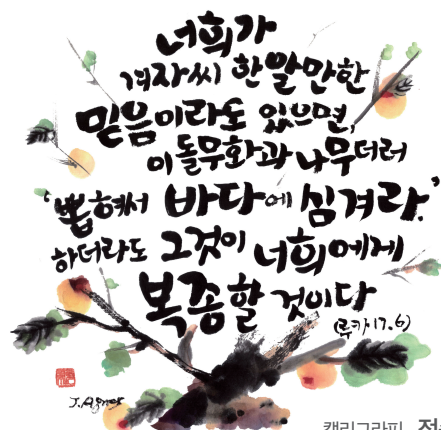 너희가
겨자씨 한알만한
믿음이라도 있으면,
이 돌무화과 나무더러
‘뽑혀서 바다에 심겨라.’
하더라도 그것이 너희에게
복종할 것이다
(루카17.6)
캘리그라피